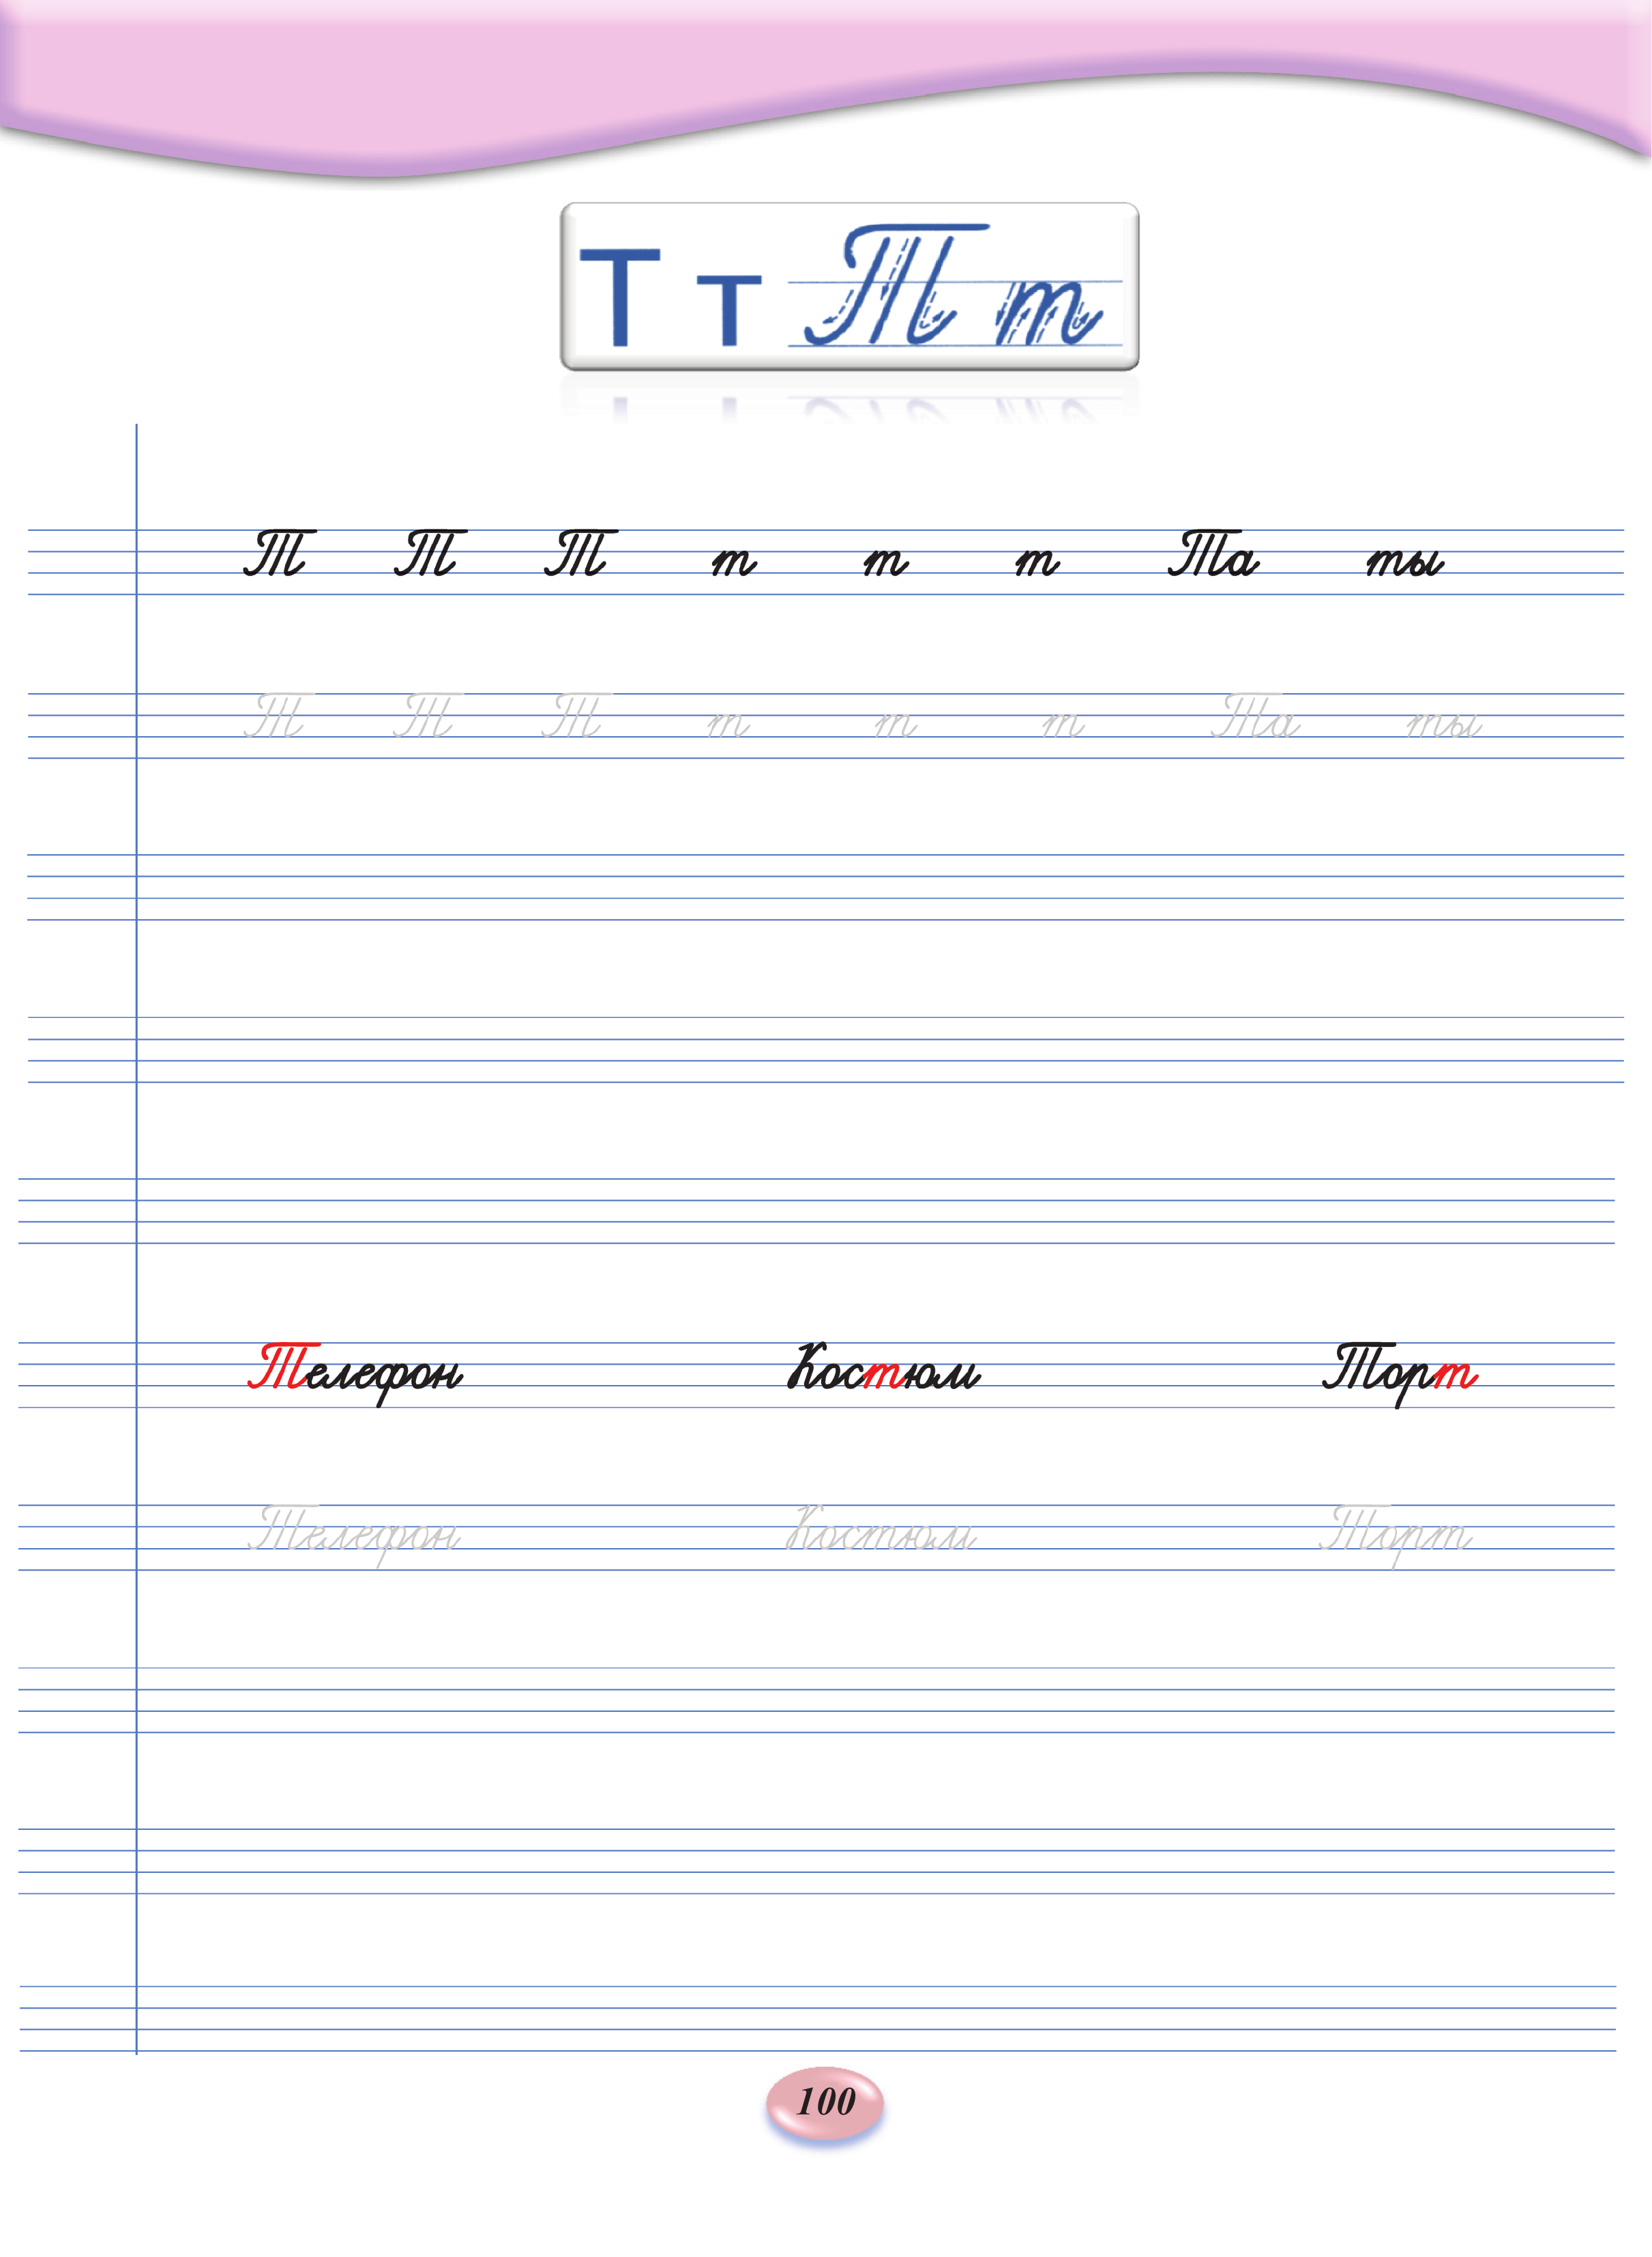 Т т Т т
Т Т Т т т т Та ты
Т Т Т т т т Та ты
Телефон Костюм Торт
Телефон Костюм Торт
100